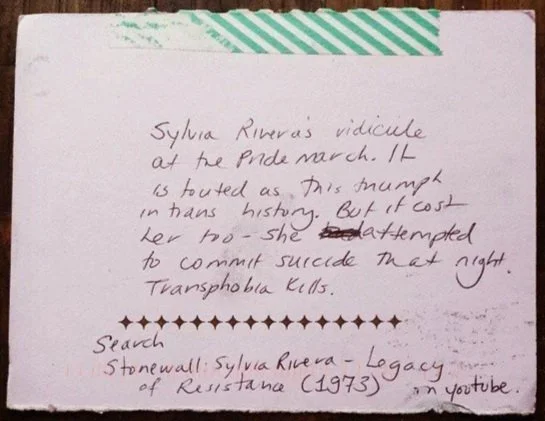 Sylvia Rivera's ridicule
at the Pride march. It
is touted as this triumph
in trans history. But it cost
her too - she attempted
to commit suicide that night.
Transphobia Kills.
Search
Stonewall: Sylvia Rivera - Legacy
of Resistance (1973) on youtube.